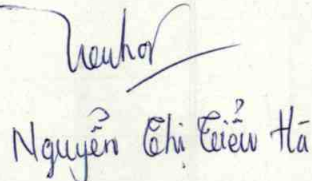 Nguyễn Thị Tiểu Hà